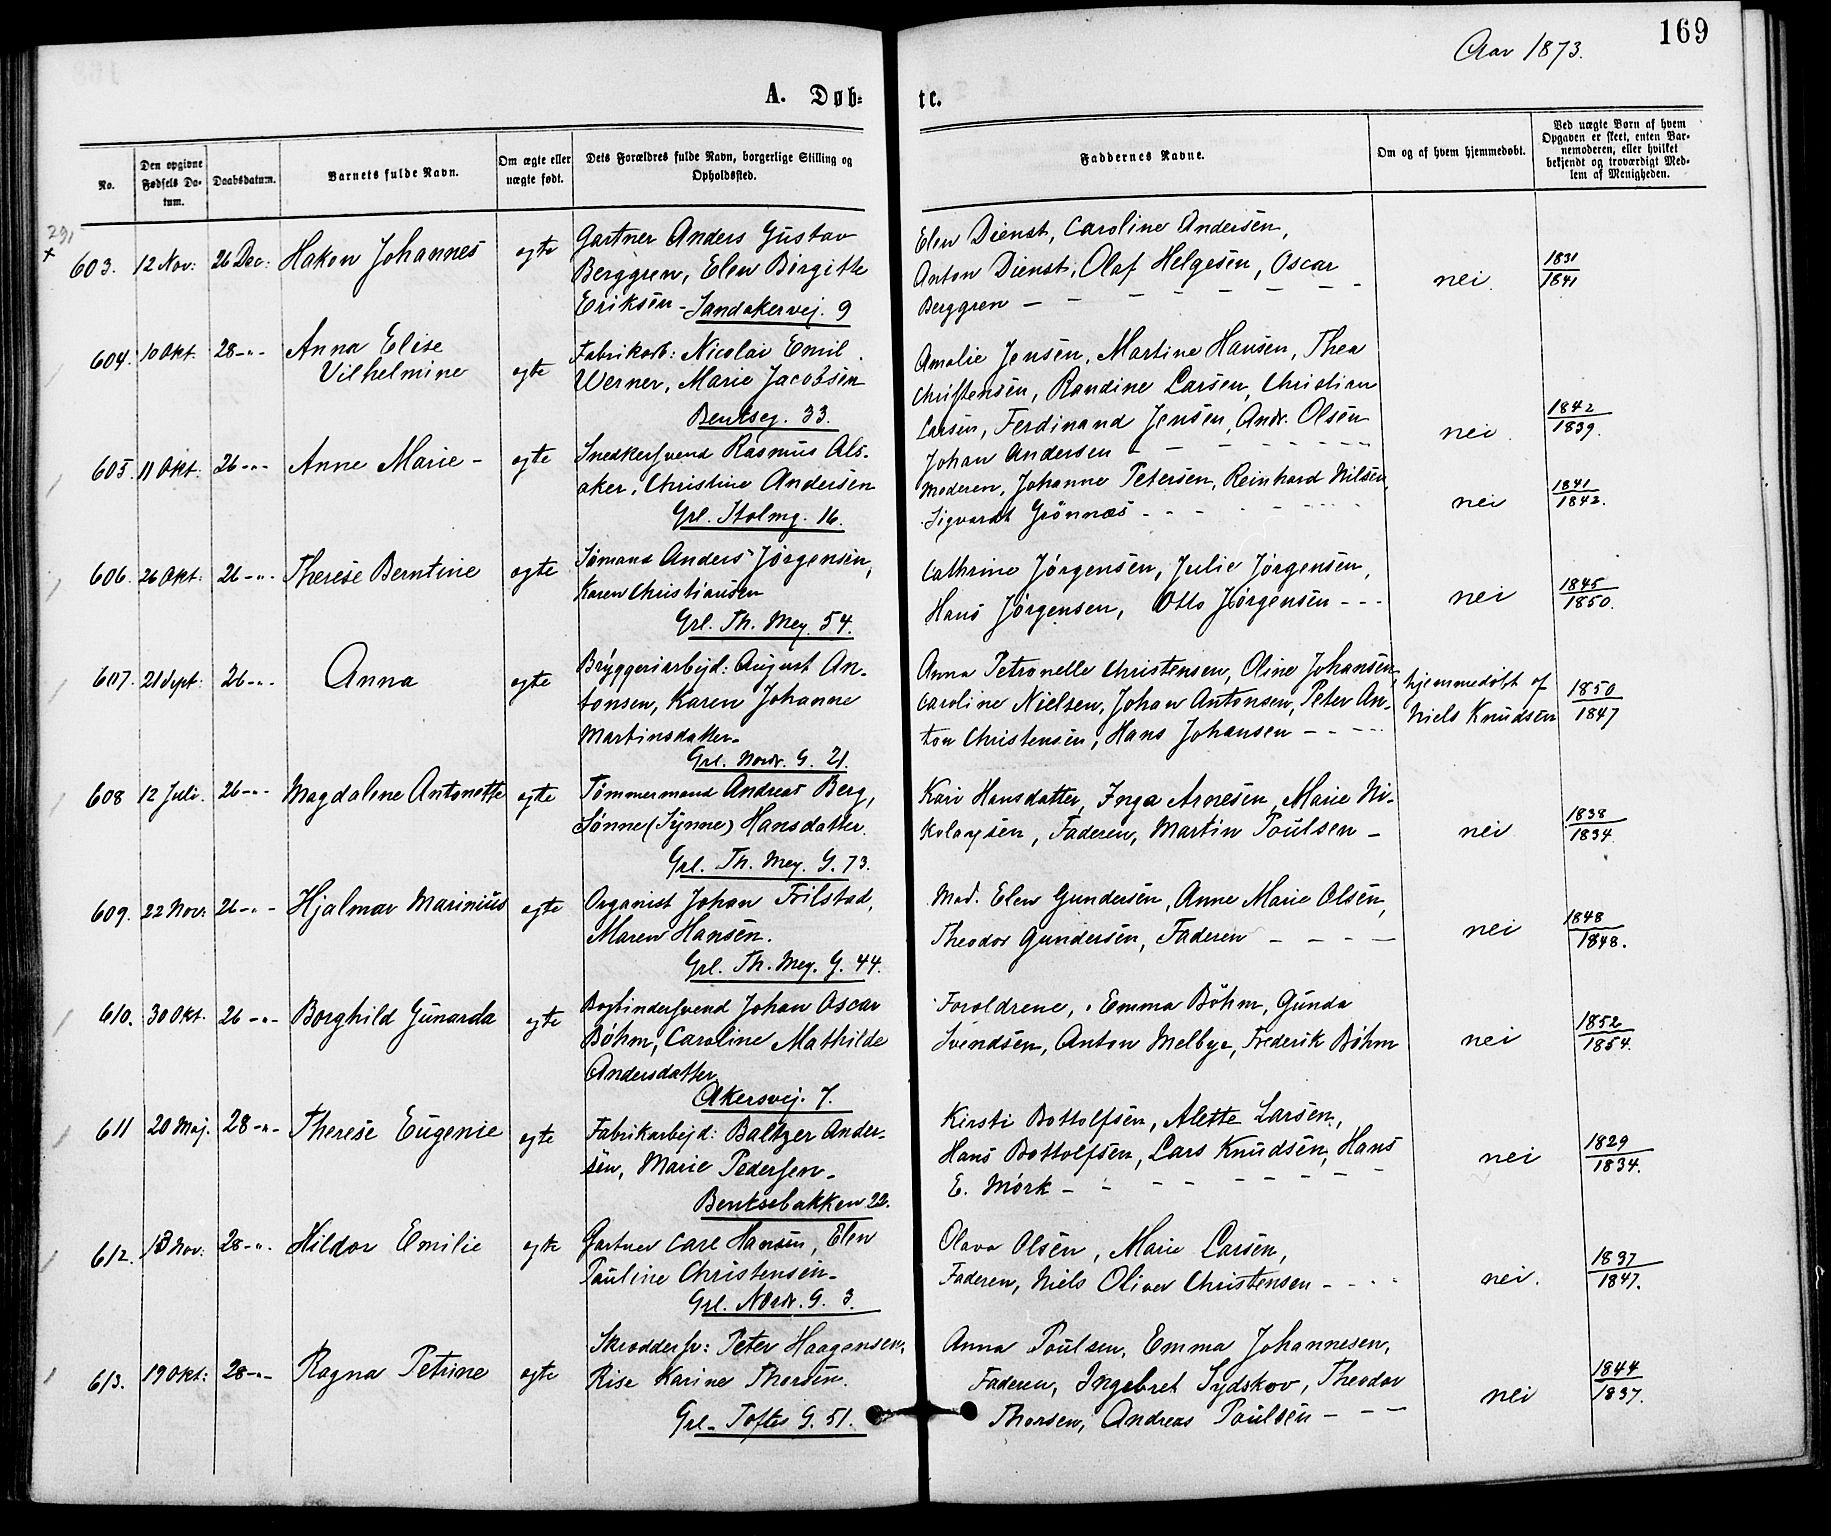 169
Aar 1873.
A. Døb-
te.
No.
Den opgivne Fødsels Da-tum.
Daabsdatum.
Barnets fulde Navn.
Om ægte eller uægte født.
Dets Forældres fulde Navn, borgerlige Stilling og Opholdssted.
Faddernes Navne.
Om og af hvem hjemmedøbt.
Ved uægte Born af hvem Opgaven er skeet, enten Bar-nemoderen, eller hvilket bekjendt og troværdigt Med-lem af Menigheden.
291
+
603. 12 Nov: 26 Dec: Hakon Johannes egte
Gartner Anders Gustav
Berggren, Elen Birgitte
Eriksen - Sandakervej. 9
Elen Dienst, Caroline Andersen,
Anton Dienst, Olaf Helgesen, Oscar
Berggren — nei 1831 1841
604. 10 Okt. 28-"- Anna Elise
Vilhelmine egte
Fabrikarb: Nicolai Emil
Werner, Marie Jacobsen
Bentseg. 33.
Amalie Jensen, Martine Hansen, Thea
Christensen, Randine Larsen, Christian
Larsen, Ferdinand Jensen, Andr. Olsen
Johan Andersen — nei 1842 1839.
605. 11 Okt. 26-"- Anne Marie - egte
Snedkersvend Rasmus Als-
aker, Christine Andersen
Grl. Stolmg. 16.
Moderen, Johanne Petersen, Reinhard Nilsen,
Sigvardt Grönnæs - - - nei 1841 1842.
606. 26 Okt: 26-"- Therese Berntine egte
Sømand Anders Jörgensen,
Karen Christiansen
Grl. Th. Mey. 54.
Cathrine Jörgensen, Julie Jörgensen,
Hans Jörgensen, Otto Jörgensen - - - nei 1845 1850.
607. 21 Sept: 26-"- Anna egte
Bryggeriarbejd: August An-
tonsen, Karen Johanne
Martinsdatter-
Grl. Nordr. G. 21.
Anna Petronelle Christensen, Oline Johansen,
Caroline Nielsen, Johan Antonsen, Peter An-
ton Christensen, Hans Johansen - - -
hjemmedöbt af
Niels Knudsen 1850 1847
608 12 Juli. 26-"- Magdalene Antonette egte
Tömmermand Andreas Berg,
Sönne (Synne) Hansdatter.
Grl. Th. Mey. G. 73.
Kari Hansdatter, Inga Arnesen, Marie Ni-
kolaysen, Faderen, Martin Poulsen - nei 1838 1834.
609. 22 Nov: 26-"- Hjalmar Marinius egte
Organist Johan Filstad,
Maren Hansen.
Grl. Th. Mey. G. 44.
Mad. Elen Gundersen, Anne Marie Olsen,
Theodor Gundersen, Faderen - - - nei 1848 1848.
610. 30 Okt. 26-"- Borghild Gunarda egte
Bogbindersvend Johan Oscar
Böhm, Caroline Mathilde
Andersdatter
Akersvej. 7.
Foraldrene, Emma Böhm, Gunda
Svendsen, Anton Melbye, Frederik Böhm nei 1852 1854.
611 20 Maj. 28-"- Therese Eugenie egte
Fabrikarbejd: Baltzer Ander-
sen, Marie Pedersen-
Bentsebakken 22.
Kirsti Bottolfsen, Alette Larsen,
Hans Bottolfsen, Lars Knudsen, Hans
E. Mörk - - - nei 1829 1834.
612. 13 Nov: 28-"- Hildor Emilie egte
Gartner Carl Hansen, Elen
Pauline Christensen-
Grl. Nordr. G. 3.
Olava Olsen, Marie Larsen,
Faderen, Niels Oliver Christensen - - - nei. 1837 1847.
613. 19 Okt: 28-"- Ragna Petrine egte
Skræddersv: Peter Haagensen,
Rise Karine Thorsen.
Grl- Toftes G. 51.
Anna Poulsen, Emma Johannesen,
Faderen, Ingebret Sydskov, Theodor
Thorsen, Andreas Poulsen - - - nei 1844 1837.